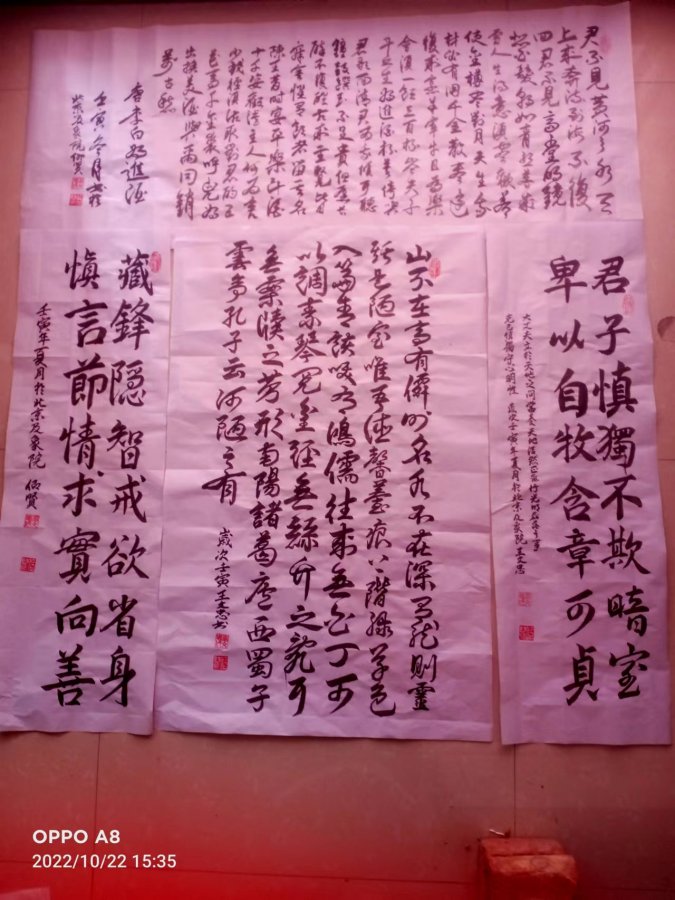 君不見黃河之水天
上來奔流到海不復
回君不見高堂明鏡
悲白髮朝如青絲暮成
雪人生得意須盡歡莫
使金樽空對月天生我
材必有用千金散盡還
復來烹羊宰牛且為樂
會須一飲三百杯岑夫子
丹丘生將進酒杯莫停與
君歌一曲請君為我傾耳聽
鐘鼓饌玉不足貴但願長
醉不復醒古來聖賢皆
寂寞惟有飲者留其名
陳王昔時宴平樂斗酒
十千恣歡謔主人何為言
少錢徑須沽取對君酌五
花馬千金裘呼兒將
出換美酒與爾同銷
萬古愁
唐李白將進酒
壬寅冬月書於
北京及象院
君子慎獨不欺暗室
卑以自牧含章可貞
大丈夫立於天地之間當養天地浩然
克己慎獨守心明性 歲次壬寅年夏月於北京及象院王文忠
山不在高有僊則名水不在深有龍則靈
斯是陋室唯吾德馨苔痕上階綠草色
入簾青談咲有鴻儒往來無白丁可
以調素琴閱金經無絲竹之亂耳
無案牘之勞形南陽諸葛廬西蜀子
雲亭孔子云何陋之有
歲次壬寅王文忠書
藏鋒隐智戒欲省身
慎言節情求實向善
壬寅年夏月於北京及象院
OPPO A8
2022/10/22 15:35